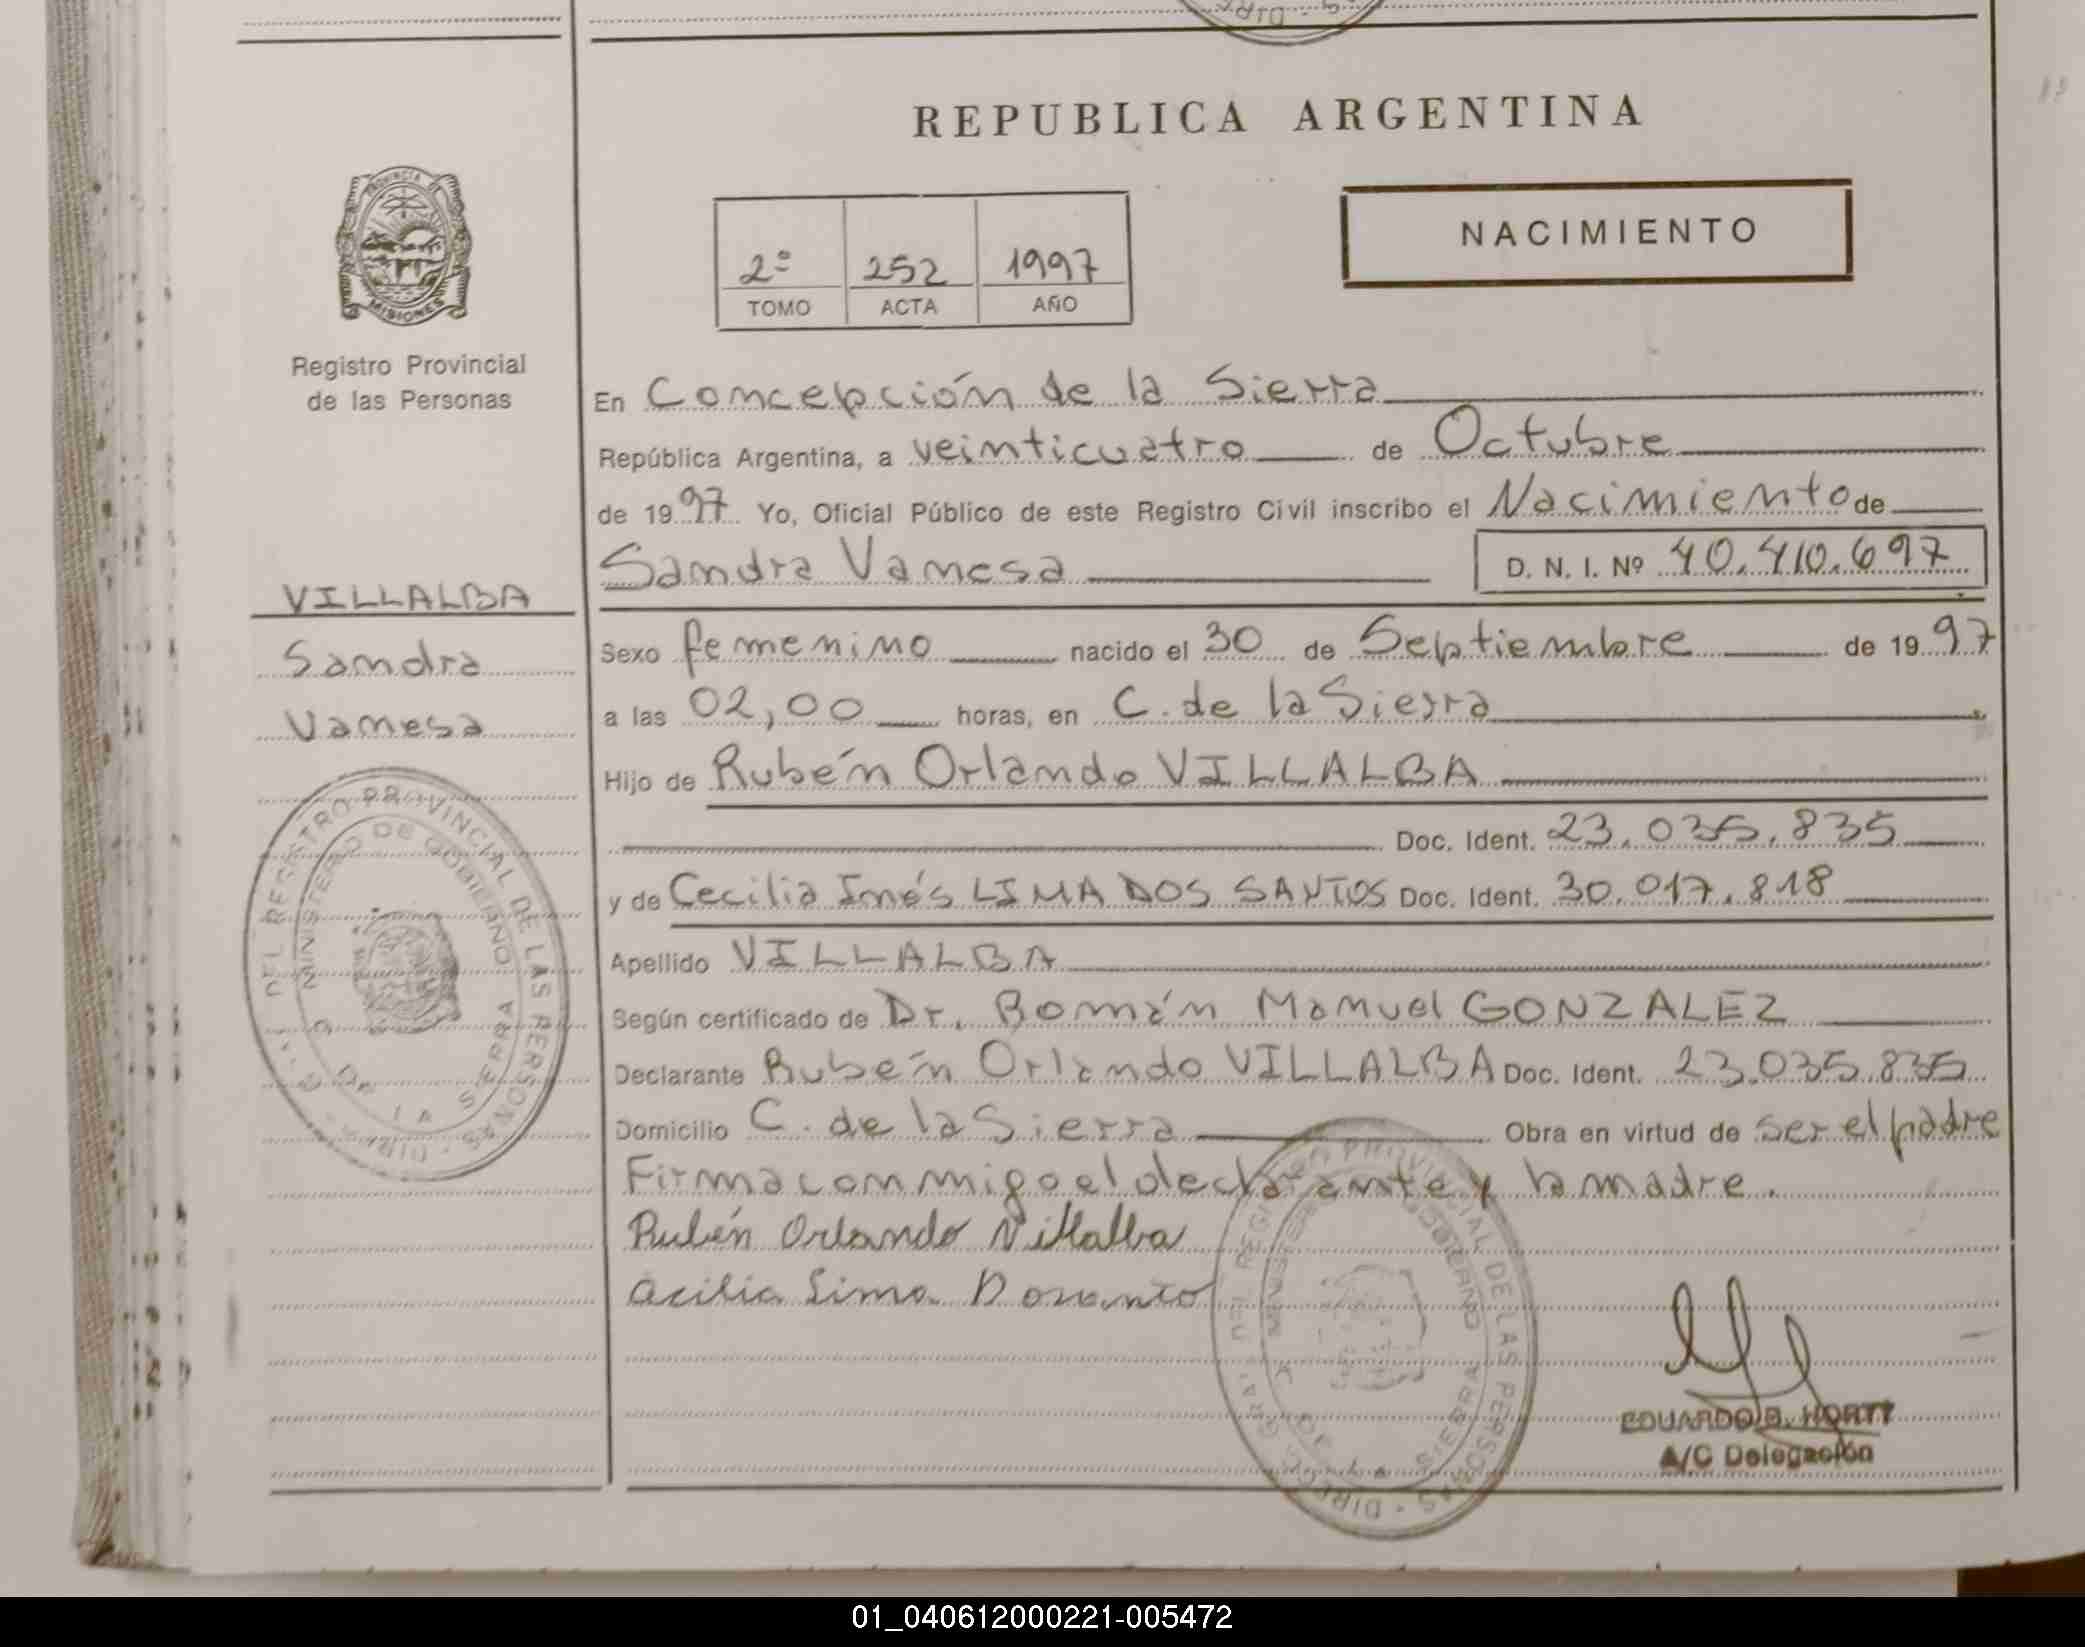 REPUBLICA ARGENTINA
NACIMIENTO
2º 252 1997
TOMO ACTA AÑO
PROVINCIA DE
MISIONES
Registro Provincial
de las Personas
VILLALBA
Sandra
Vanesa
En Concepción de la Sierra
República Argentina, a veinticuatro de Octubre
de 1997 Yo, Oficial Público de este Registro Civil inscribo el Nacimiento de
Sandra Vanesa D. N. I. Nº 40.410.697
Sexo femenino nacido el 30 de Septiembre de 1997
a las 02,00 horas, en C. de la Sierra
Hijo de Rubén Orlando VILLALBA
Doc. Ident. 23.035.835
y de Cecilia Inés LIMA DOS SANTOS Doc. Ident. 30.017.818
Apellido VILLALBA
Según certificado de Dr. Román Manuel GONZALEZ
Declarante Rubén Orlando VILLALBA Doc. Ident. 23.035.835
Domicilio C. de la Sierra Obra en virtud de ser el padre
Firma conmigo el declarante y la madre.
Rubén Orlando Villalba
Cecilia Lima Dosanto
EDUARDO B. HORTT
A/C Delegación
DEL REGISTRO PROVINCIAL DE LAS PERSONAS
MINISTERIO DE GOBIERNO
DE LA SIERRA
PROVINCIAL DE LAS PERSONAS
GOBIERNO
SIERRA
01_040612000221-005472